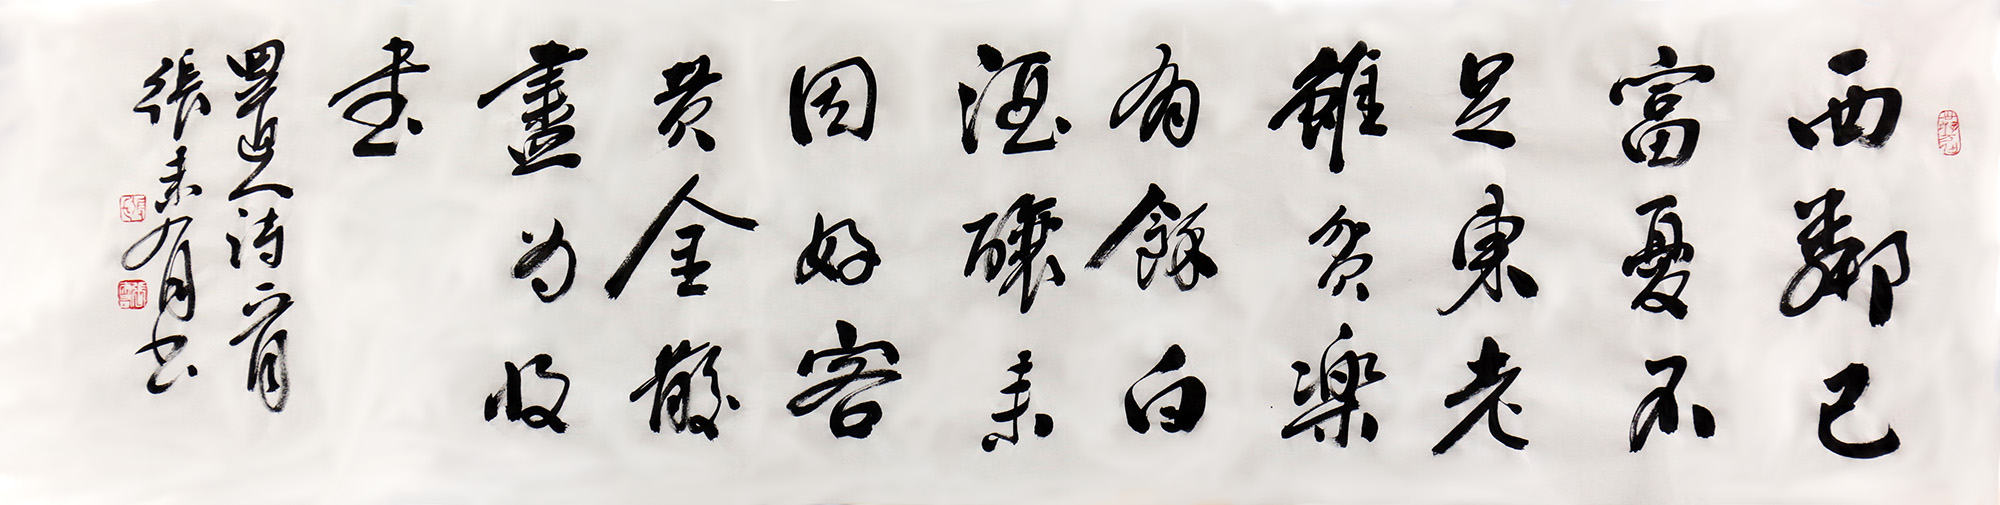 西鄰已
富憂不
足東老
雖貧樂
有餘白
酒釀來
因好客
黃金散
盡為收
書
道人詩一首
張來有書